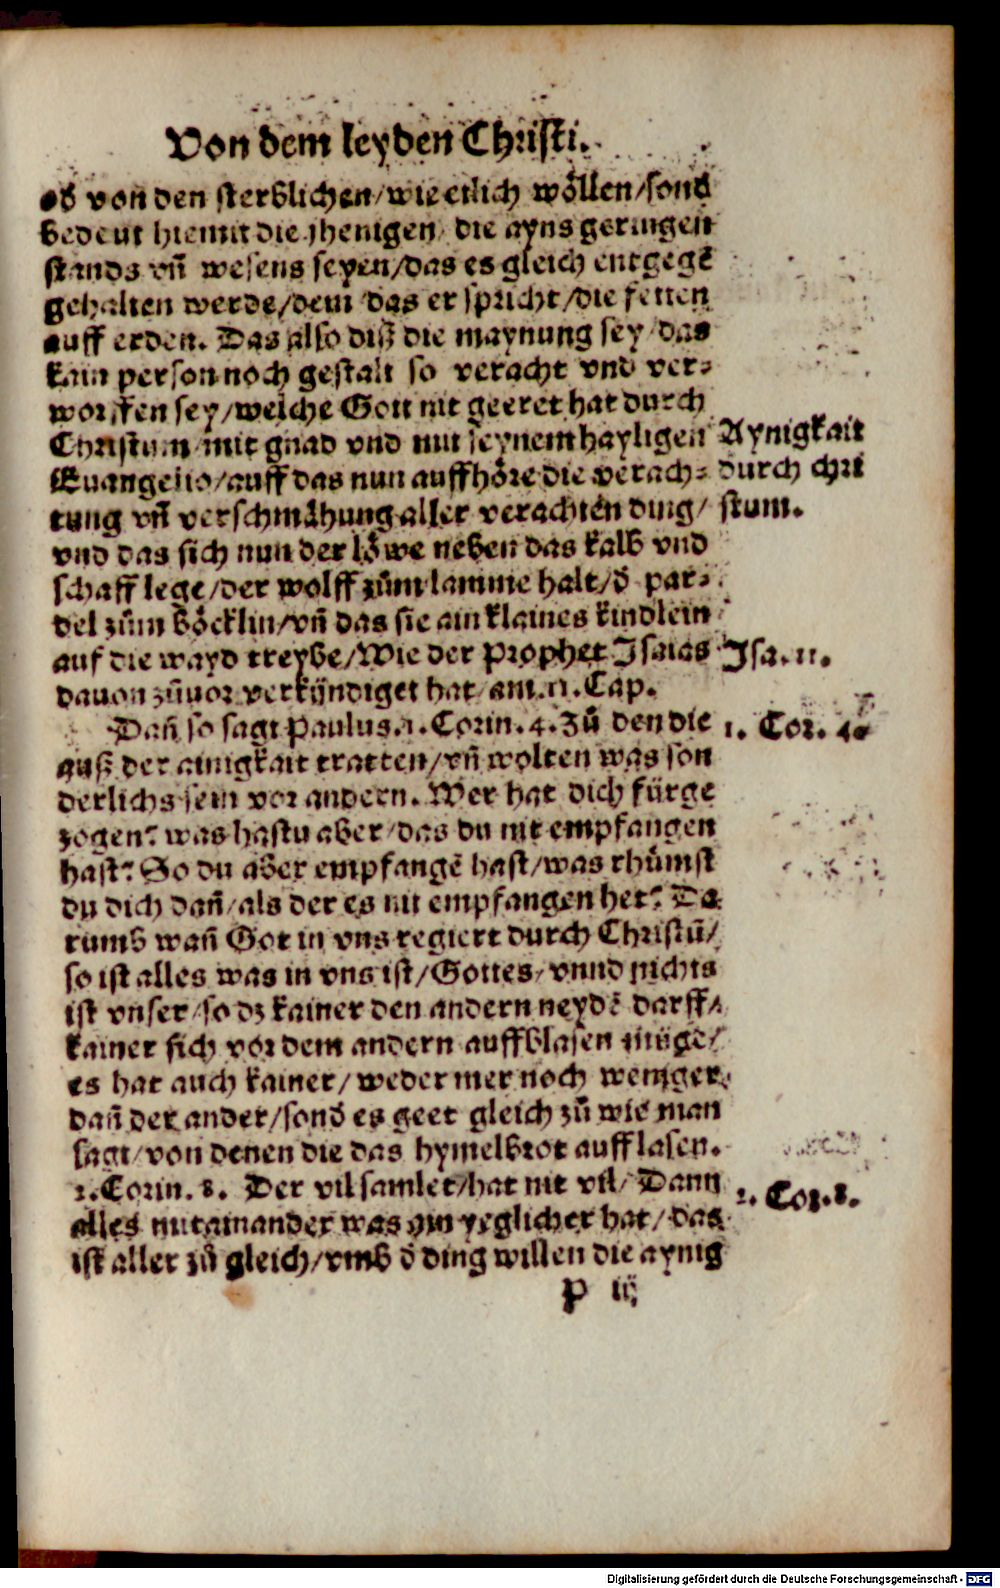 Von dem leyden Christi.
od von den sterblichen/wie etlich wöllen/sond
bedeut hiemit die jhenigen/ die ayns geringen
stands vñ wesens seyen/das es gleich entgegē
gehalten werde/dem das er spricht/die fetten
auff erden. Das also diß die maynung sey/das
kain person noch gestalt so veracht vnd ver⸗
worffen sey/welche Gott nit geeret hat durch
Christum/mit gnad vnd mit seynem hayligen
Euangelio/auff das nun auffhöre die verach⸗
tung vñ verschmähung aller verachten ding/
vnd das sich nun der löwe neben das kalb vnd
schaff lege/der wolff zům lamme halt/d̄ par⸗
del zům böcklin/vñ das sie ain klaines kindlein
auf die wayd treybe/Wie der Prophet Isaias
dauon zůuor verkündiget hat/am.11.Cap.
Aynigkait
durch chri
stum.
Isa. 11.
Dañ so sagt Paulus.1.Corin.4.Zů den die
auß der ainigkait tratten/vñ wolten was son
derlichs sein vor andern. Wer hat dich fürge
zogen? was hastu aber/das du nit empfangen
hast? So du aber empfangē hast/was rhůmst
du dich dañ/als der es nit empfangen het? Da
rumb wañ Got in vns regiert durch Christū/
so ist alles was in vns ist/Gottes/vnnd nichts
ist vnser/so dz kainer den andern neydē darff/
kainer sich vor dem andern auffblasen müge/
es hat auch kainer/weder mer noch weniger
dañ der ander/sond̄ es geet gleich zů wie man
sagt/von denen die das hymelbrot aufflasen.
2.Corin. 8. Der vil samlet/hat nit vil/Dann
alles mitainander was ym yeglicher hat/das
ist aller zů gleich/vmb d̄ ding willen die aynig
1. Cor. 4.
2. Cor. 8.
P iij
Digitalisierung gefördert durch die Deutsche Forschungsgemeinschaft - DFG